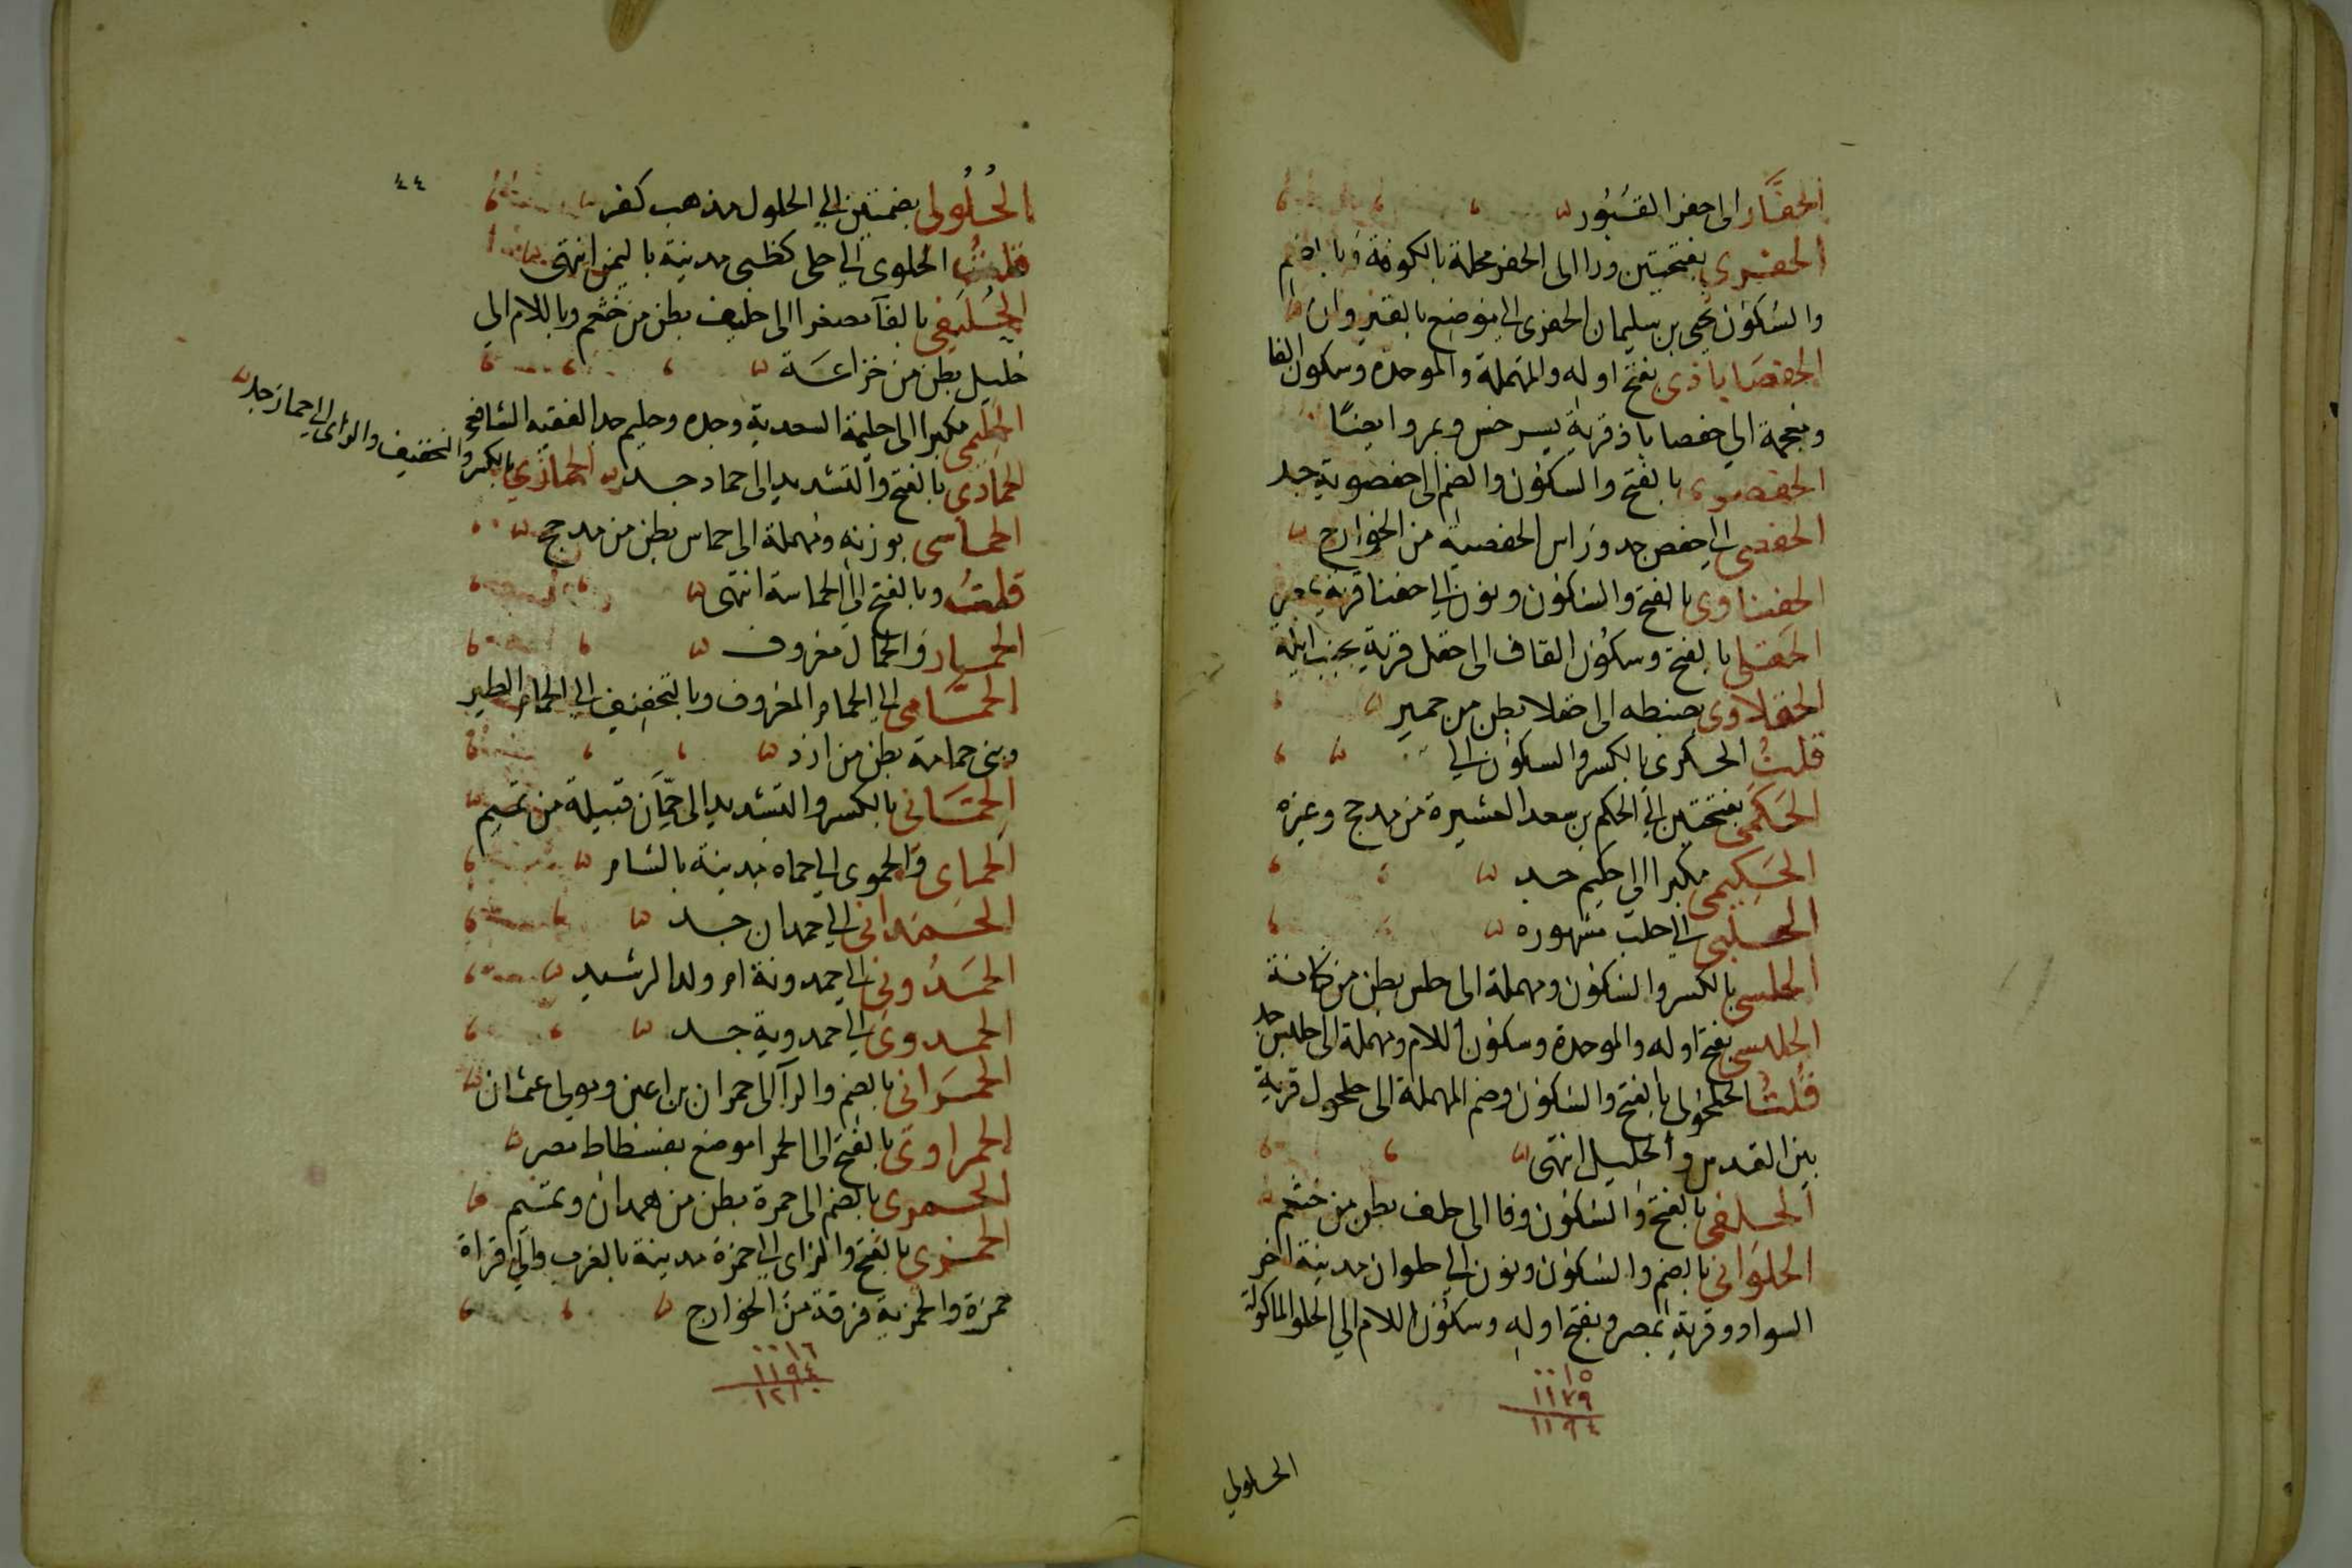 الحفَّار الى حفر القبُور
الحفرى بفتحتين ورا الى الحفر محلة بالكوفة وبالضم
والسكون يحيى بن سليمان الحفرى الى موضع بالقيروان
الحفصاباذى بفتح اوله والمهملة والموحدة وسكون الفا
ومعجمة الى حفصاباذ قرية بسرخس وبمرو ايضًا
الحفصوى بالفتح والسكون والضم الى حفصوية جد
الحفصى الى حفص جد وراس الحفصية من الخوارج
الحفناوى بالفتح والسكون ونون الى حفنا قرية بمصر
الحَقلى بالفتح وسكون القاف الى حقل قرية بجنب ايلة
الحقلاوى بضبطه الى حقلا بطن من حمير
قلتُ الحكرى بالكسر والسكون الى
الحَكَمى بفتحتين الى الحكم بن سعد العشيرة من مدحج وغيره
الحَكِيمى مكبرا الى حكيم جد
الحلبى الى حلب مشهوره
الحلسى بالكسر والسكون ومهملة الى حلس بطن من كنانة
الحلبسى بفتح اوله والموحدة وسكون اللام ومهملة الى حلبس جد
قُلتُ الحلحولى بالفتح والسكون وضم المهملة الى حلحول قرية
بين القدس والخليل انتهى
الحلفى بالفتح والسكون وفا الى حلف بطن من خثعم
الحلوَانى بالضم والسكون ونون الى حلوان مدينة اخر
السواد وقرية بمصر وبفتح اوله وسكون اللام الى الحلو الماكولة
٠٠١٥
١١٧٩
١١٩٤
الحلولي
٤٤
الحُلُولى بضمتين الى الحلول مذهب كفر
قلتُ الحلوى الى حلى كظبى مدينة باليمن انتهى
الحُلَيفى بالفآ مصغرا الى حليف بطن من خثعم وباللام الى
حليل بطن من خزاعَة
الحليمى مكبرا الى حليمة السعدية وجده وحليم جد الفقيه الشافعى
الحمادى بالفتح والتشديد الى حماد جد الحمازى بالكسر والتخفيف والزاى الى حماز جد
الحماسى بوزنه ومهملة الى حماس بطن من مدحج
قلتُ وبالفتح الى الحماسة انتهى
الحمار والحمال معروف
الحمَّامى الى الحمام المعروف وبالتخفيف الى الحمام الطير
وبنى حمامة بطن من ازد
الحِمَّانى بالكسر والتشديد الى حِمَّان قبيلة من تميم
الحماى والحموى الى حماه مدينة بالشام
الحَمدانى الى حمدان جد
الحَمدُونى الى حمدونة ام ولد الرشيد
الحمدوى الى حمدوية جد
الحمرَانى بالضم والرآ الى حمران بن اعين ومولى عثمان
الحمراوى بالفتح الى الحمرا موضع بفسطاط مصر
الحمرى بالضم الى حمرة بطن من همدان وتميم
الحمزى بالفتح والزاى الى حمزة مدينة بالغرب والى قراة
حمزة والحمزية فرقة من الخوارج
٠٠١٦
١١٩٤
١٢١٠